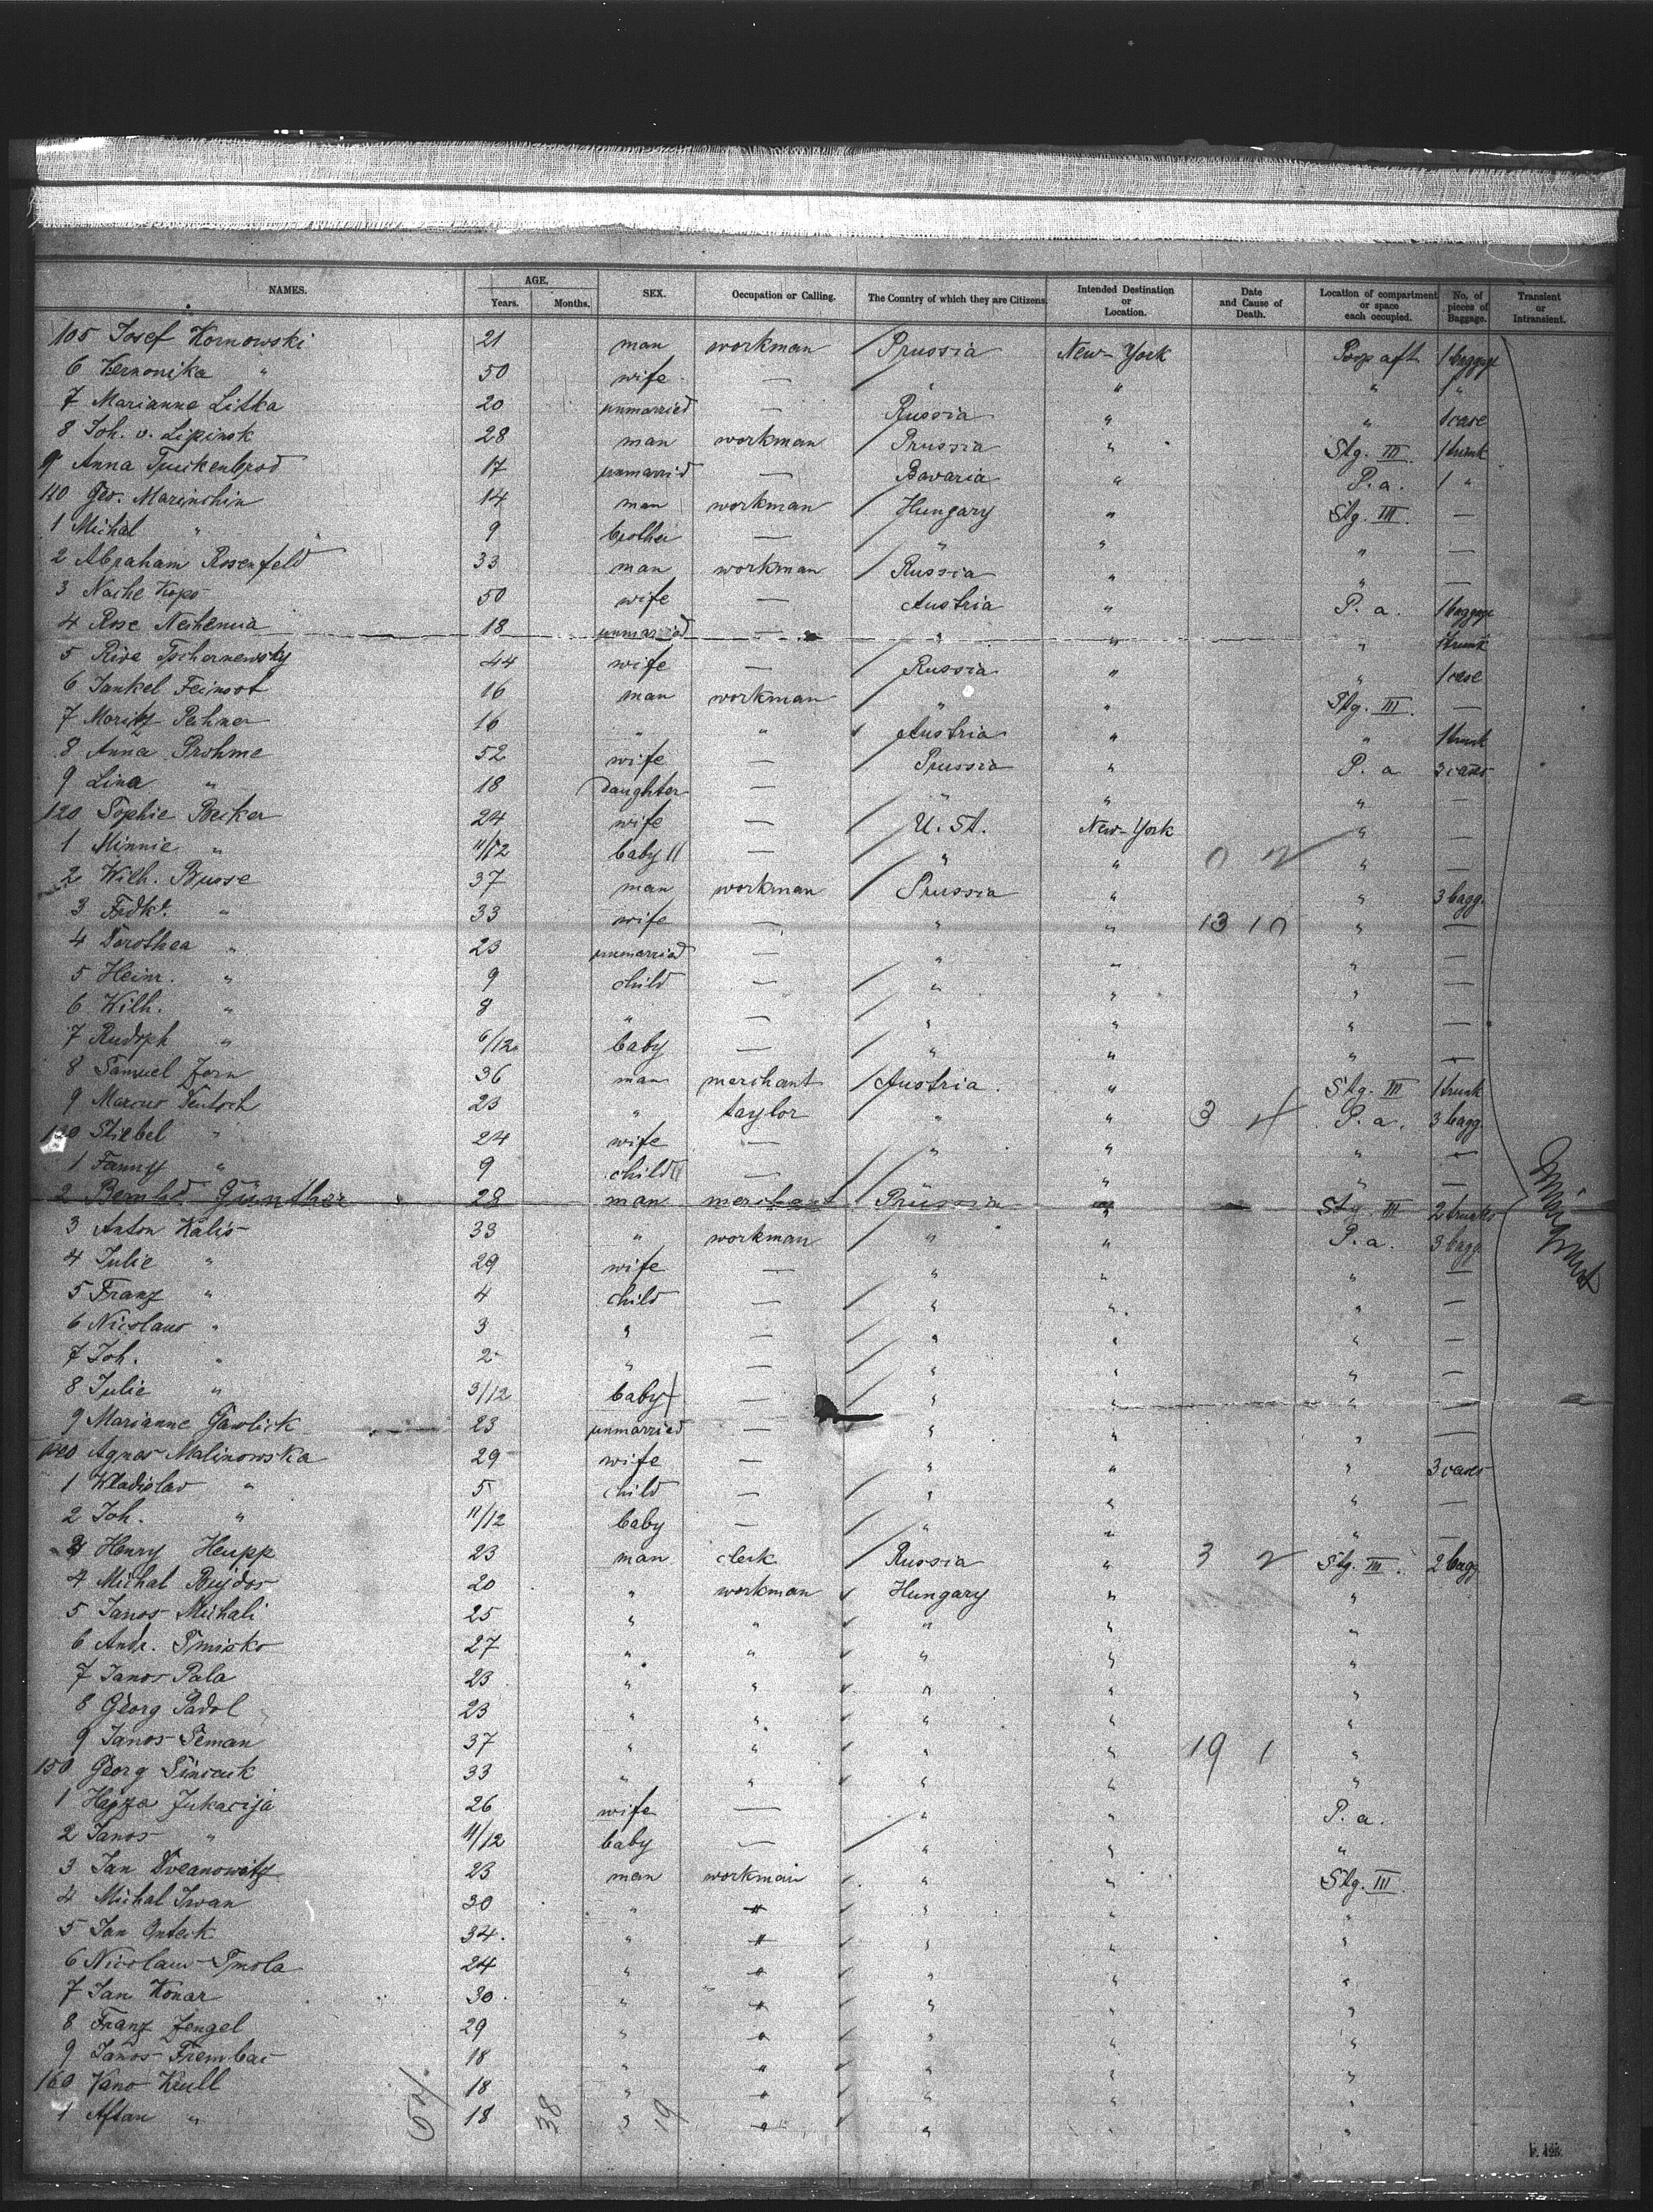 NAMES. AGE. Years. Months. SEX. Occupation or Calling. The Country of which they are Citizens. Intended Destination or Location. Date and Cause of Death. Location of compartment or space each occupied. No. of pieces of Baggage. Transient or Intransient.
105 Josef Kornowski 21 man workman Prussia New-York Poop aft 1 baggage
6 " 50 wife — " " " "
7 Marianne Litka 20 unmarried — Russia " " 1 case
8 Joh. v. Lipinsk 28 man workman Prussia " Stg. III. 1 trunk
9 Anna 17 unmarrid — Bavaria " P. a. 1 "
110 Geo. Marinchin 14 man workman Hungary " Stg. III. —
1 Michal " 9 brother — " " " —
2 Abraham Rosenfeld 33 man workman Russia " " —
3 Kops 50 wife — Austria " P. a. 1 baggage
4 Rose 18 unmarried — " " " 1 trunk
5 Rive Tschernewsky 44 wife — Russia " " 1 case
6 Jankel 16 man workman " " Stg. III. —
7 Moritz 16 " " Austria " " 1 trunk
8 Anna Prohme 52 wife — Prussia " P. a 3 cases
9 Lina " 18 daughter — " " " —
120 Sophie Becker 24 wife — U. St. New-York " —
1 Minnie " 11/12 baby 11 — " " 0 2 " —
2 Wilh. Busse 37 man workman Prussia " " 3 bagg.
3 " 33 wife — " " 13 10 " —
4 Dorothea " 23 unmarried — " " " —
5 Heinr. " 9 child — " " " —
6 Wilh. " 8 " — " " " —
7 Rudoph " 6/12 baby — " " " —
8 Samuel Zorn 36 man merchant Austria. " Stg. III 1 trunk
9 Marcus Deutsch 23 " taylor " " 3 4 P. a. 3 bagg.
130 Stiebel " 24 wife — " " " —
1 Fanny " 9 child — " " " —
2 Bernhd. Günther 28 man merchant Prussia " Stg. III 2 trunks
3 Anton Kalis 33 " workman " " P. a. 3 bagg.
4 Julie " 29 wife — " " " —
5 Franz " 4 child — " " " —
6 Nicolaus " 3 " — " " " —
7 Joh. " 2 " — " " " —
8 Julie " 3/12 baby — " " " —
9 Marianne Gawlick 23 unmarried — " " " —
140 Agnes Malinowska 29 wife — " " " 3 cases
1 Wladislav " 5 child — " " " —
2 Joh. " 11/12 baby — " " " —
3 Henry Heupp 23 man clerk Russia " 3 2 Stg. III. 2 bagg
4 Michal Bujdos 20 " workman Hungary " "
5 Janos Michali 25 " " " " "
6 Andr. Smisko 27 " " " " "
7 Janos Pala 23 " " " " "
8 Georg Padol 23 " " " " "
9 Janos Seman 37 " " " " 19 1 "
150 Georg 33 " " " " "
1 26 wife — " " P. a.
2 Janos " 11/12 baby — " " "
3 Jan 23 man workman " " Stg. III.
4 Michal Iwan 30 " " " " "
5 Jan 34. " " " " "
6 Nicolaus Smola 24 " " " " "
7 Jan Konar 30. " " " " "
8 Franz Zengel 29 " " " " "
9 Janos Frembac 18 " " " " "
160 Vano Krull 18 " " " " "
1 Aftan " 18 " " " " "
38 19